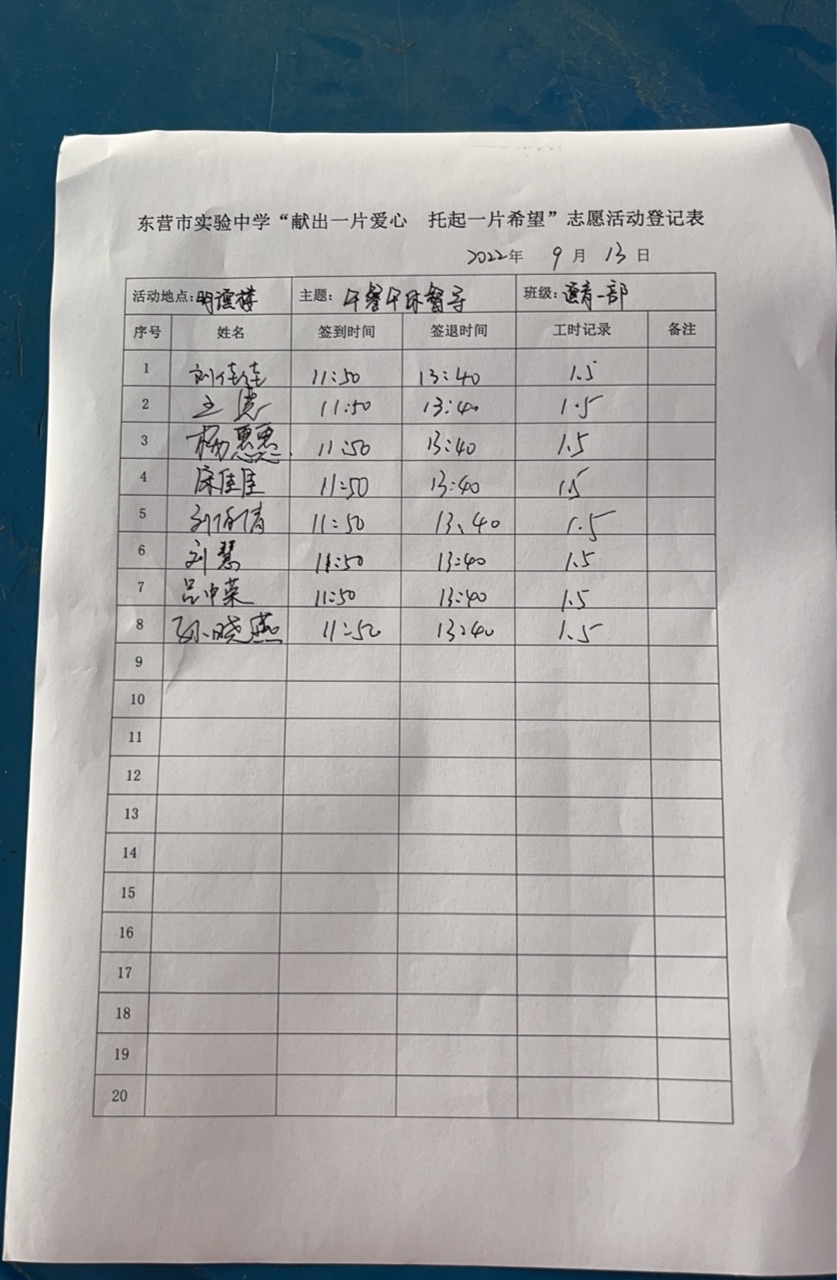 东营市实验中学“献出一片爱心 托起一片希望”志愿活动登记表
2022年 9 月 13 日
活动地点:明德楼 主题: 午餐午休督导 班级: 一部
序号 姓名 签到时间 签退时间 工时记录 备注
1 刘佳佳 11:50 13:40 1.5
2 王 11:50 13:40 1.5
3 杨惠惠 11:50 13:40 1.5
4 佳佳 11:50 13:40 1.5
5 刘倩倩 11:50 13:40 1.5
6 刘慧 11:50 13:40 1.5
7 吕中荣 11:50 13:40 1.5
8 孙晓燕 11:50 13:40 1.5
9
10
11
12
13
14
15
16
17
18
19
20